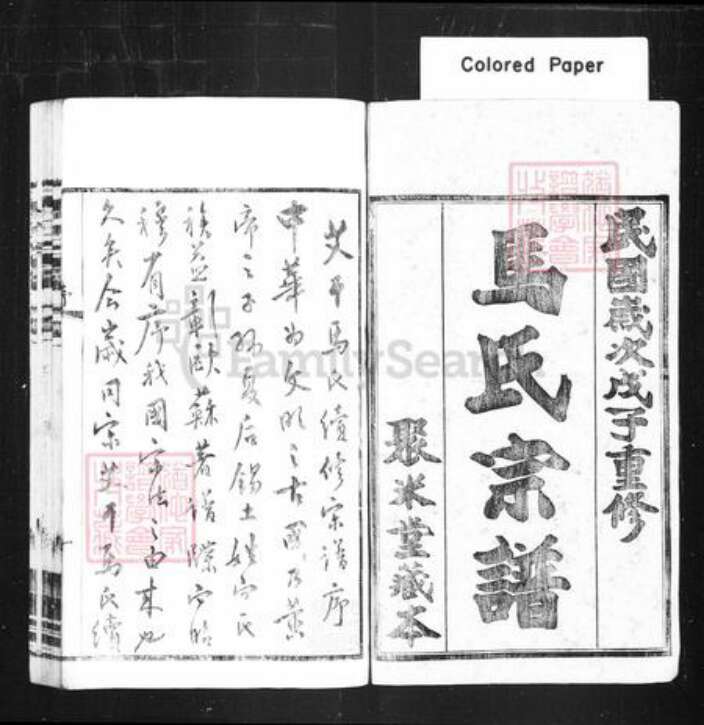 Colored Paper
民國歲次戊子重修
馬氏宗譜
聚米堂藏本
艾干馬氏續修宗譜序
中華為文明之古國乃黃
帝之子孫夏后錫土姓宗氏
族益章歐蘇著譜牒
穆有序我國宗法之由來也
久矣今歲同宗艾干馬氏續
FamilySearch